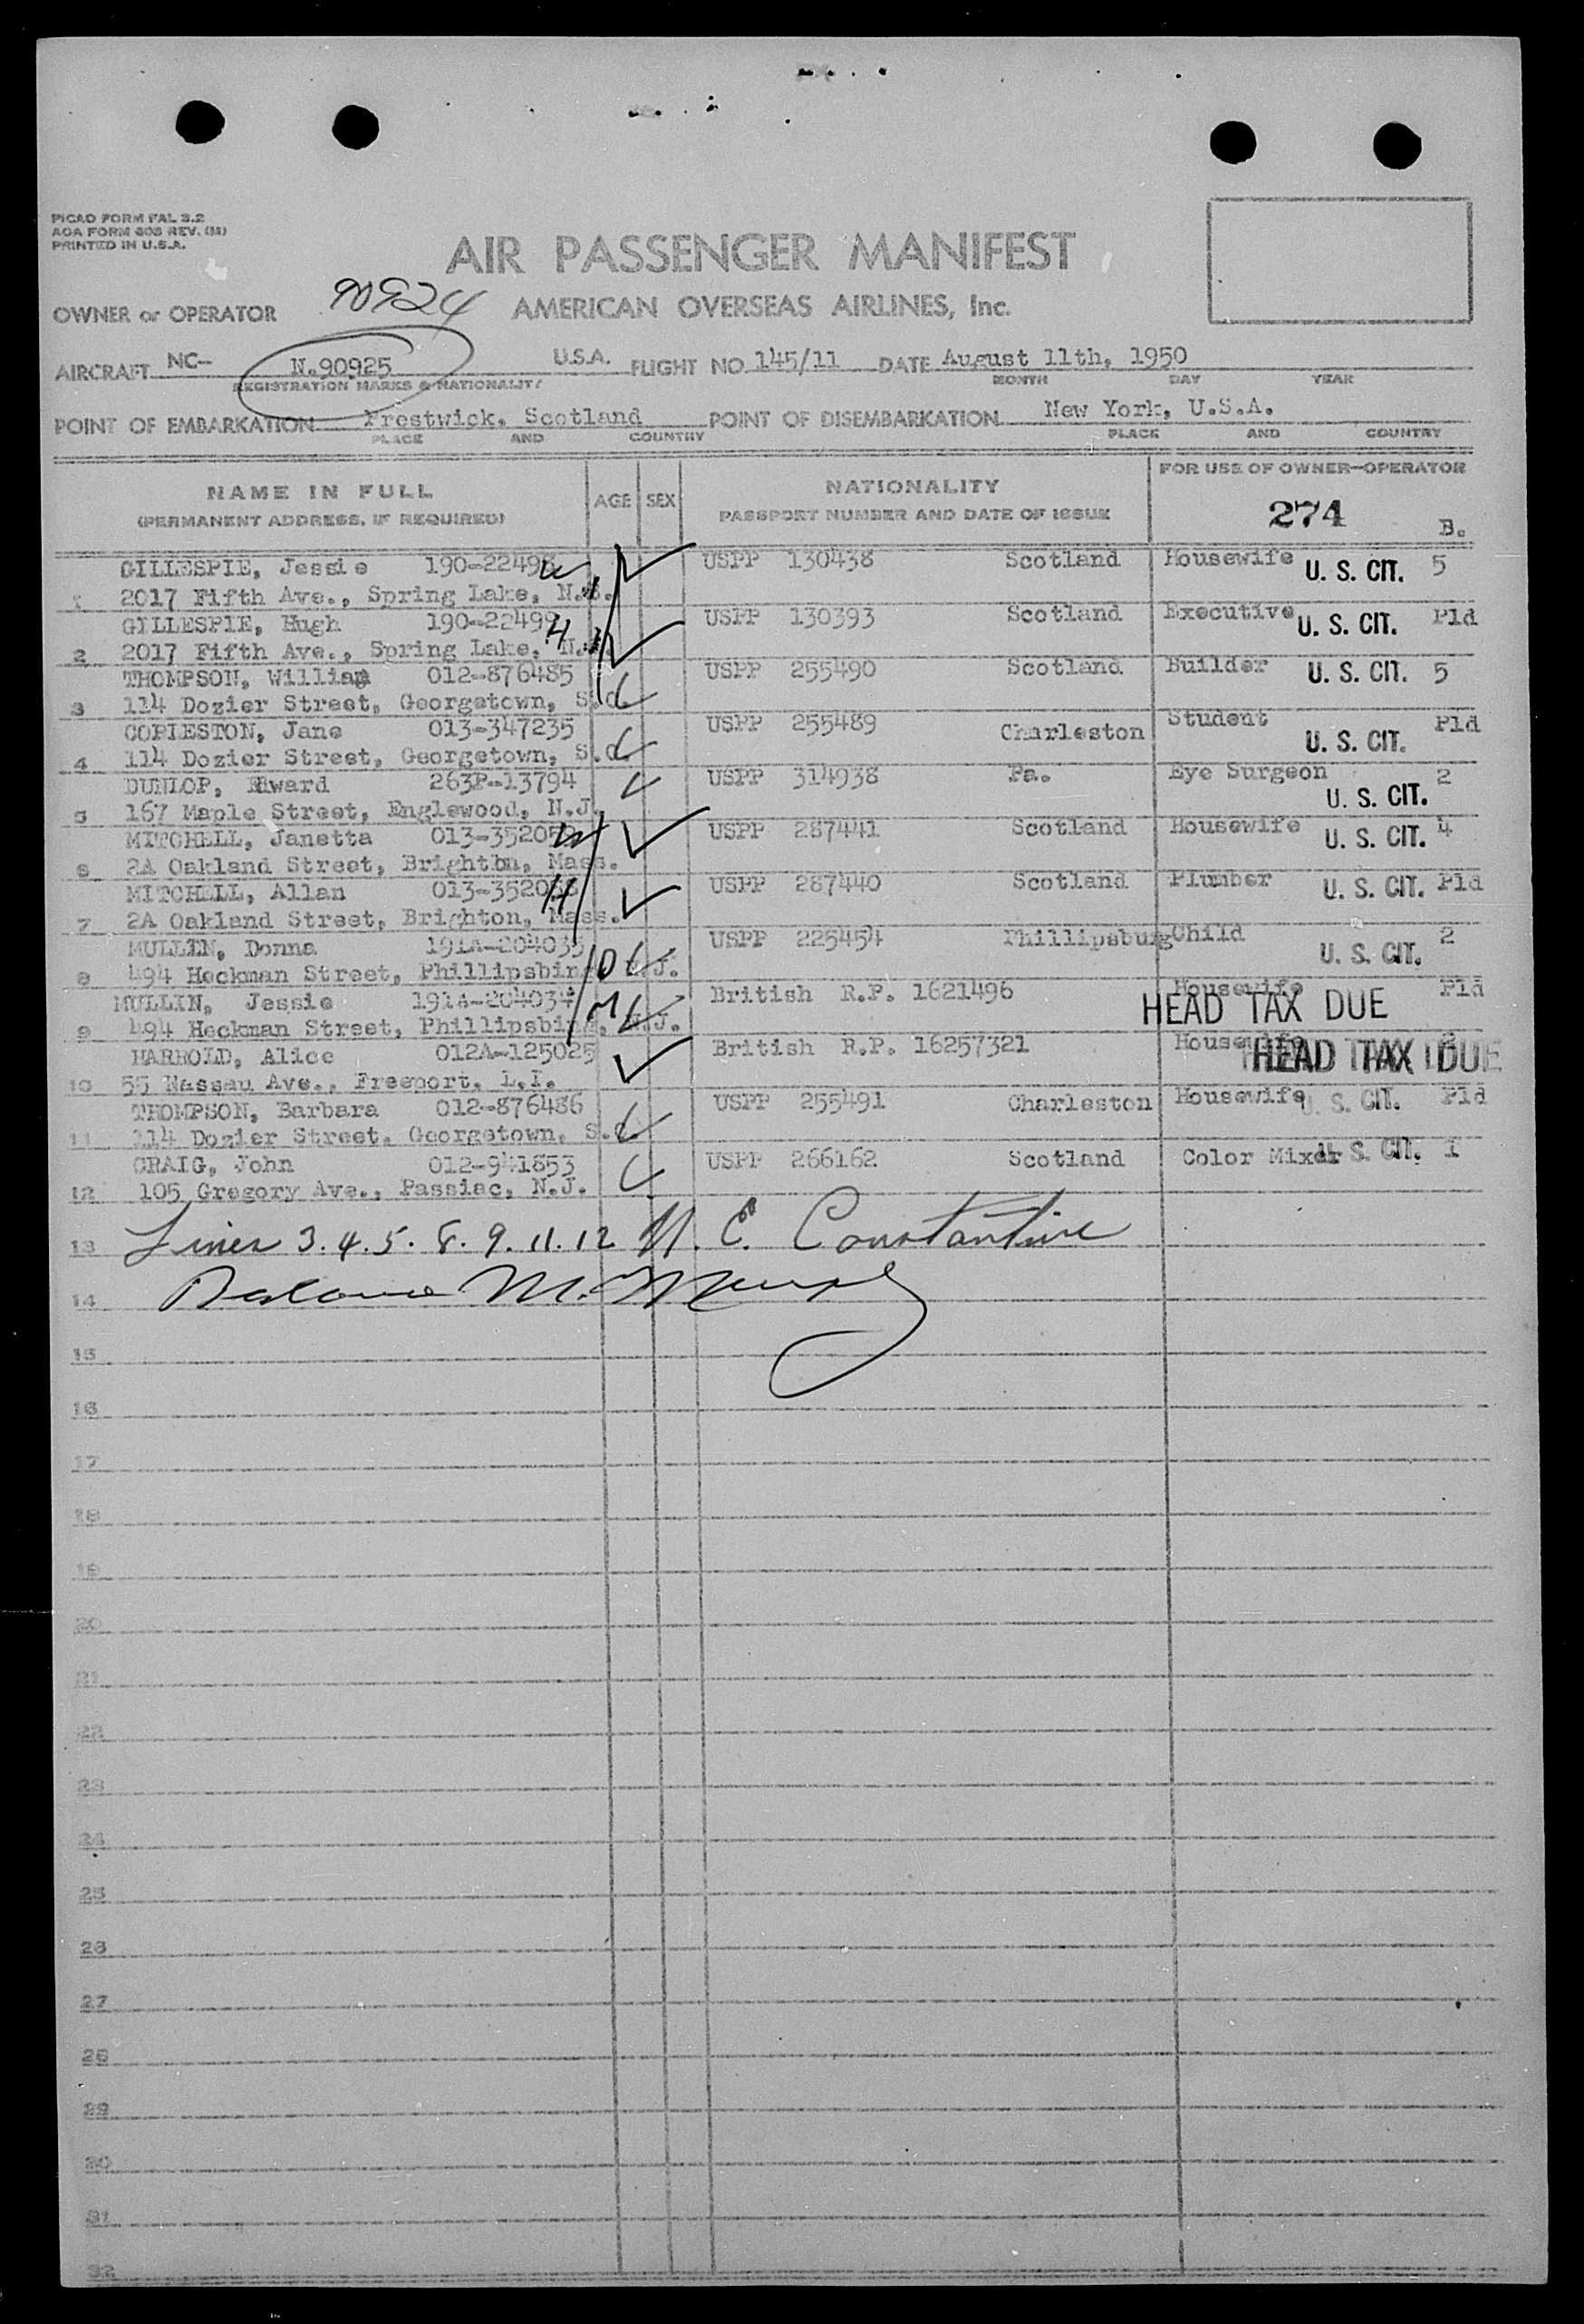 PICAO FORM FAL 3.2
AOA FORM 608 REV. (M)
PRINTED IN U.S.A.
AIR PASSENGER MANIFEST
OWNER or OPERATOR 90924 AMERICAN OVERSEAS AIRLINES, Inc.
AIRCRAFT NC- N.90925 U.S.A. FLIGHT NO. 145/11 DATE August 11th, 1950
REGISTRATION MARKS & NATIONALITY MONTH DAY YEAR
POINT OF EMBARKATION Prestwick, Scotland POINT OF DISEMBARKATION New York, U.S.A.
PLACE AND COUNTRY PLACE AND COUNTRY
NAME IN FULL AGE SEX NATIONALITY FOR USE OF OWNER-OPERATOR
(PERMANENT ADDRESS, IF REQUIRED) PASSPORT NUMBER AND DATE OF ISSUE 274 B.
GILLESPIE, Jessie 190-22498 W USPP 130438 Scotland Housewife U. S. CIT. 5
1 2017 Fifth Ave., Spring Lake,
GILLESPIE, Hugh 190-22499 H USPP 130393 Scotland Executive U. S. CIT. Pld
2 2017 Fifth Ave., Spring Lake,
THOMPSON, William 012-876485 USPP 255490 Scotland Builder U. S. CIT. 5
3 114 Dozier Street, Georgetown, S.C.
COPLESTON, Jane 013-347235 USPP 255489 Charleston Student U. S. CIT. Pld
4 114 Dozier Street, Georgetown, S.C.
DUNLOP, Edward 263P-13794 USPP 314938 Pa. Eye Surgeon U. S. CIT. 2
5 167 Maple Street, Englewood, N.J.
MITCHELL, Janetta 013-352059 W USPP 287441 Scotland Housewife U. S. CIT. 4
6 2A Oakland Street, Brighton, Mass.
MITCHELL, Allan H USPP 287440 Scotland Plumber U. S. CIT. Pld
7 2A Oakland Street, Brighton, Mass.
MULLIN, Donna 191A-204035 USPP 225454 Phillipsburg Child U. S. CIT. 2
8 494 Heckman Street, Phillipsbing, N.J. D
MULLIN, Jessie 191A-204034 British R.P. 1621496 Housewife HEAD TAX DUE Pld
9 494 Heckman Street, Phillipsbing, N.J. M
HARROLD, Alice 012A-125025 British R.P. 16257321 Housewife HEAD TAX DUE 2
10 55 Nassau Ave., Freeport, L.I.
THOMPSON, Barbara 012-876486 USPP 255491 Charleston Housewife U. S. CIT. Pld
11 114 Dozier Street, Georgetown, S.C.
CRAIG, John 012-941853 USPP 266162 Scotland Color Mixer U. S. CIT. 1
12 105 Gregory Ave., Passiac, N.J.
13 Lines 3.4.5.8.9.11.12 N. E. Constantine
14
15
16
17
18
19
20
21
22
23
24
25
26
27
28
29
30
31
32